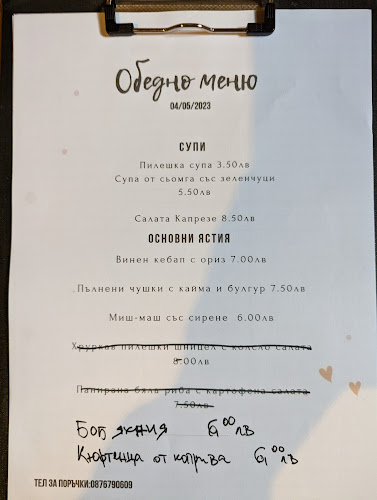 Обедно меню
04/05/2023
СУПИ
Пилешка супа 3.50лв
Супа от сьомга със зеленчуци
5.50лв
Салата Капрезе 8.50лв
ОСНОВНИ ЯСТИЯ
Винен кебап с ориз 7.00лв
Пълнени чушки с кайма и булгур 7.50лв
Миш-маш със сирене 6.00лв
Хрупкав пилешки шницел с колсло салата
8.00лв
Панирана бяла риба с картофена салата
7.50лв
Боб яхния 6.00лв
Кюфтенца от коприва 6.00лв
ТЕЛ ЗА ПОРЪЧКИ:0876790609